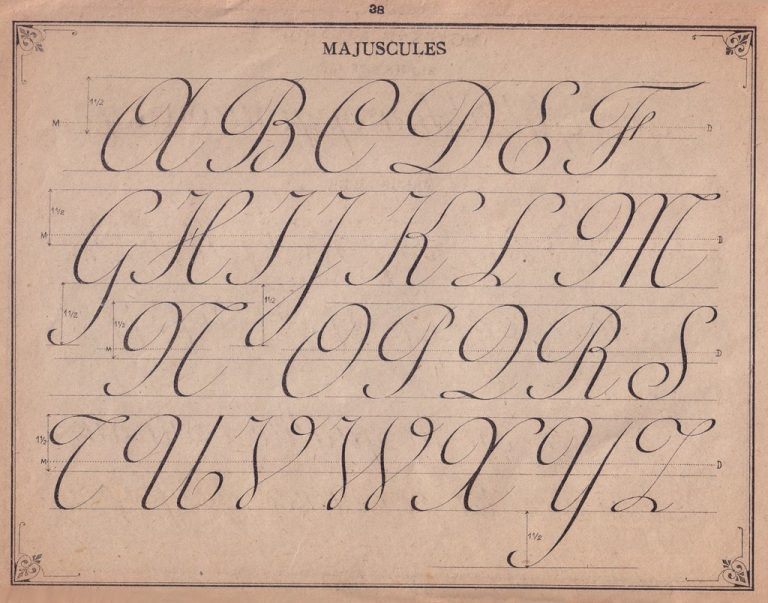 38
MAJUSCULES
1 1/2 M A B C D E F D
1 1/2 M G H I J K L M D
1 1/2 1 1/2
1 1/2 M N O P Q R S D
1 1/2 M T U V W X Y Z D
1 1/2